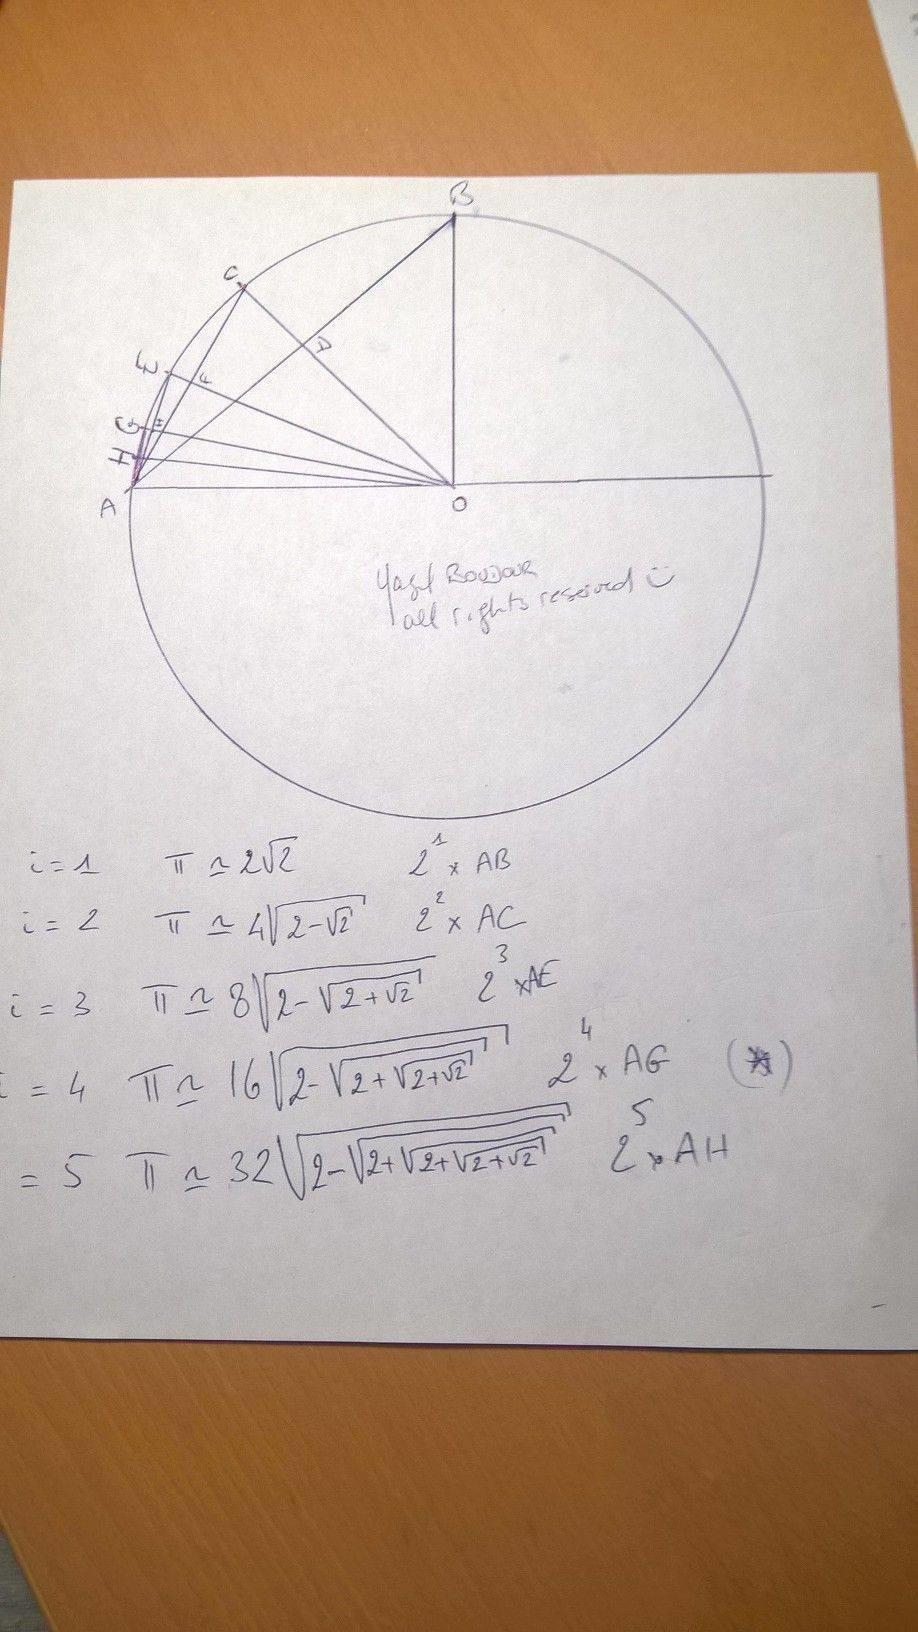 B
C
D
E
F
G
H
H
A
O
all rights reserved
i = 1 π ≃ 2√2 2^1 × AB
i = 2 π ≃ 4√(2-√2) 2^2 × AC
i = 3 π ≃ 8√(2-√(2+√2)) 2^3 × AE
i = 4 π ≃ 16√(2-√(2+√(2+√2))) 2^4 × AG (*)
= 5 π ≃ 32√(2-√(2+√(2+√(2+√2)))) 2^5 × AH